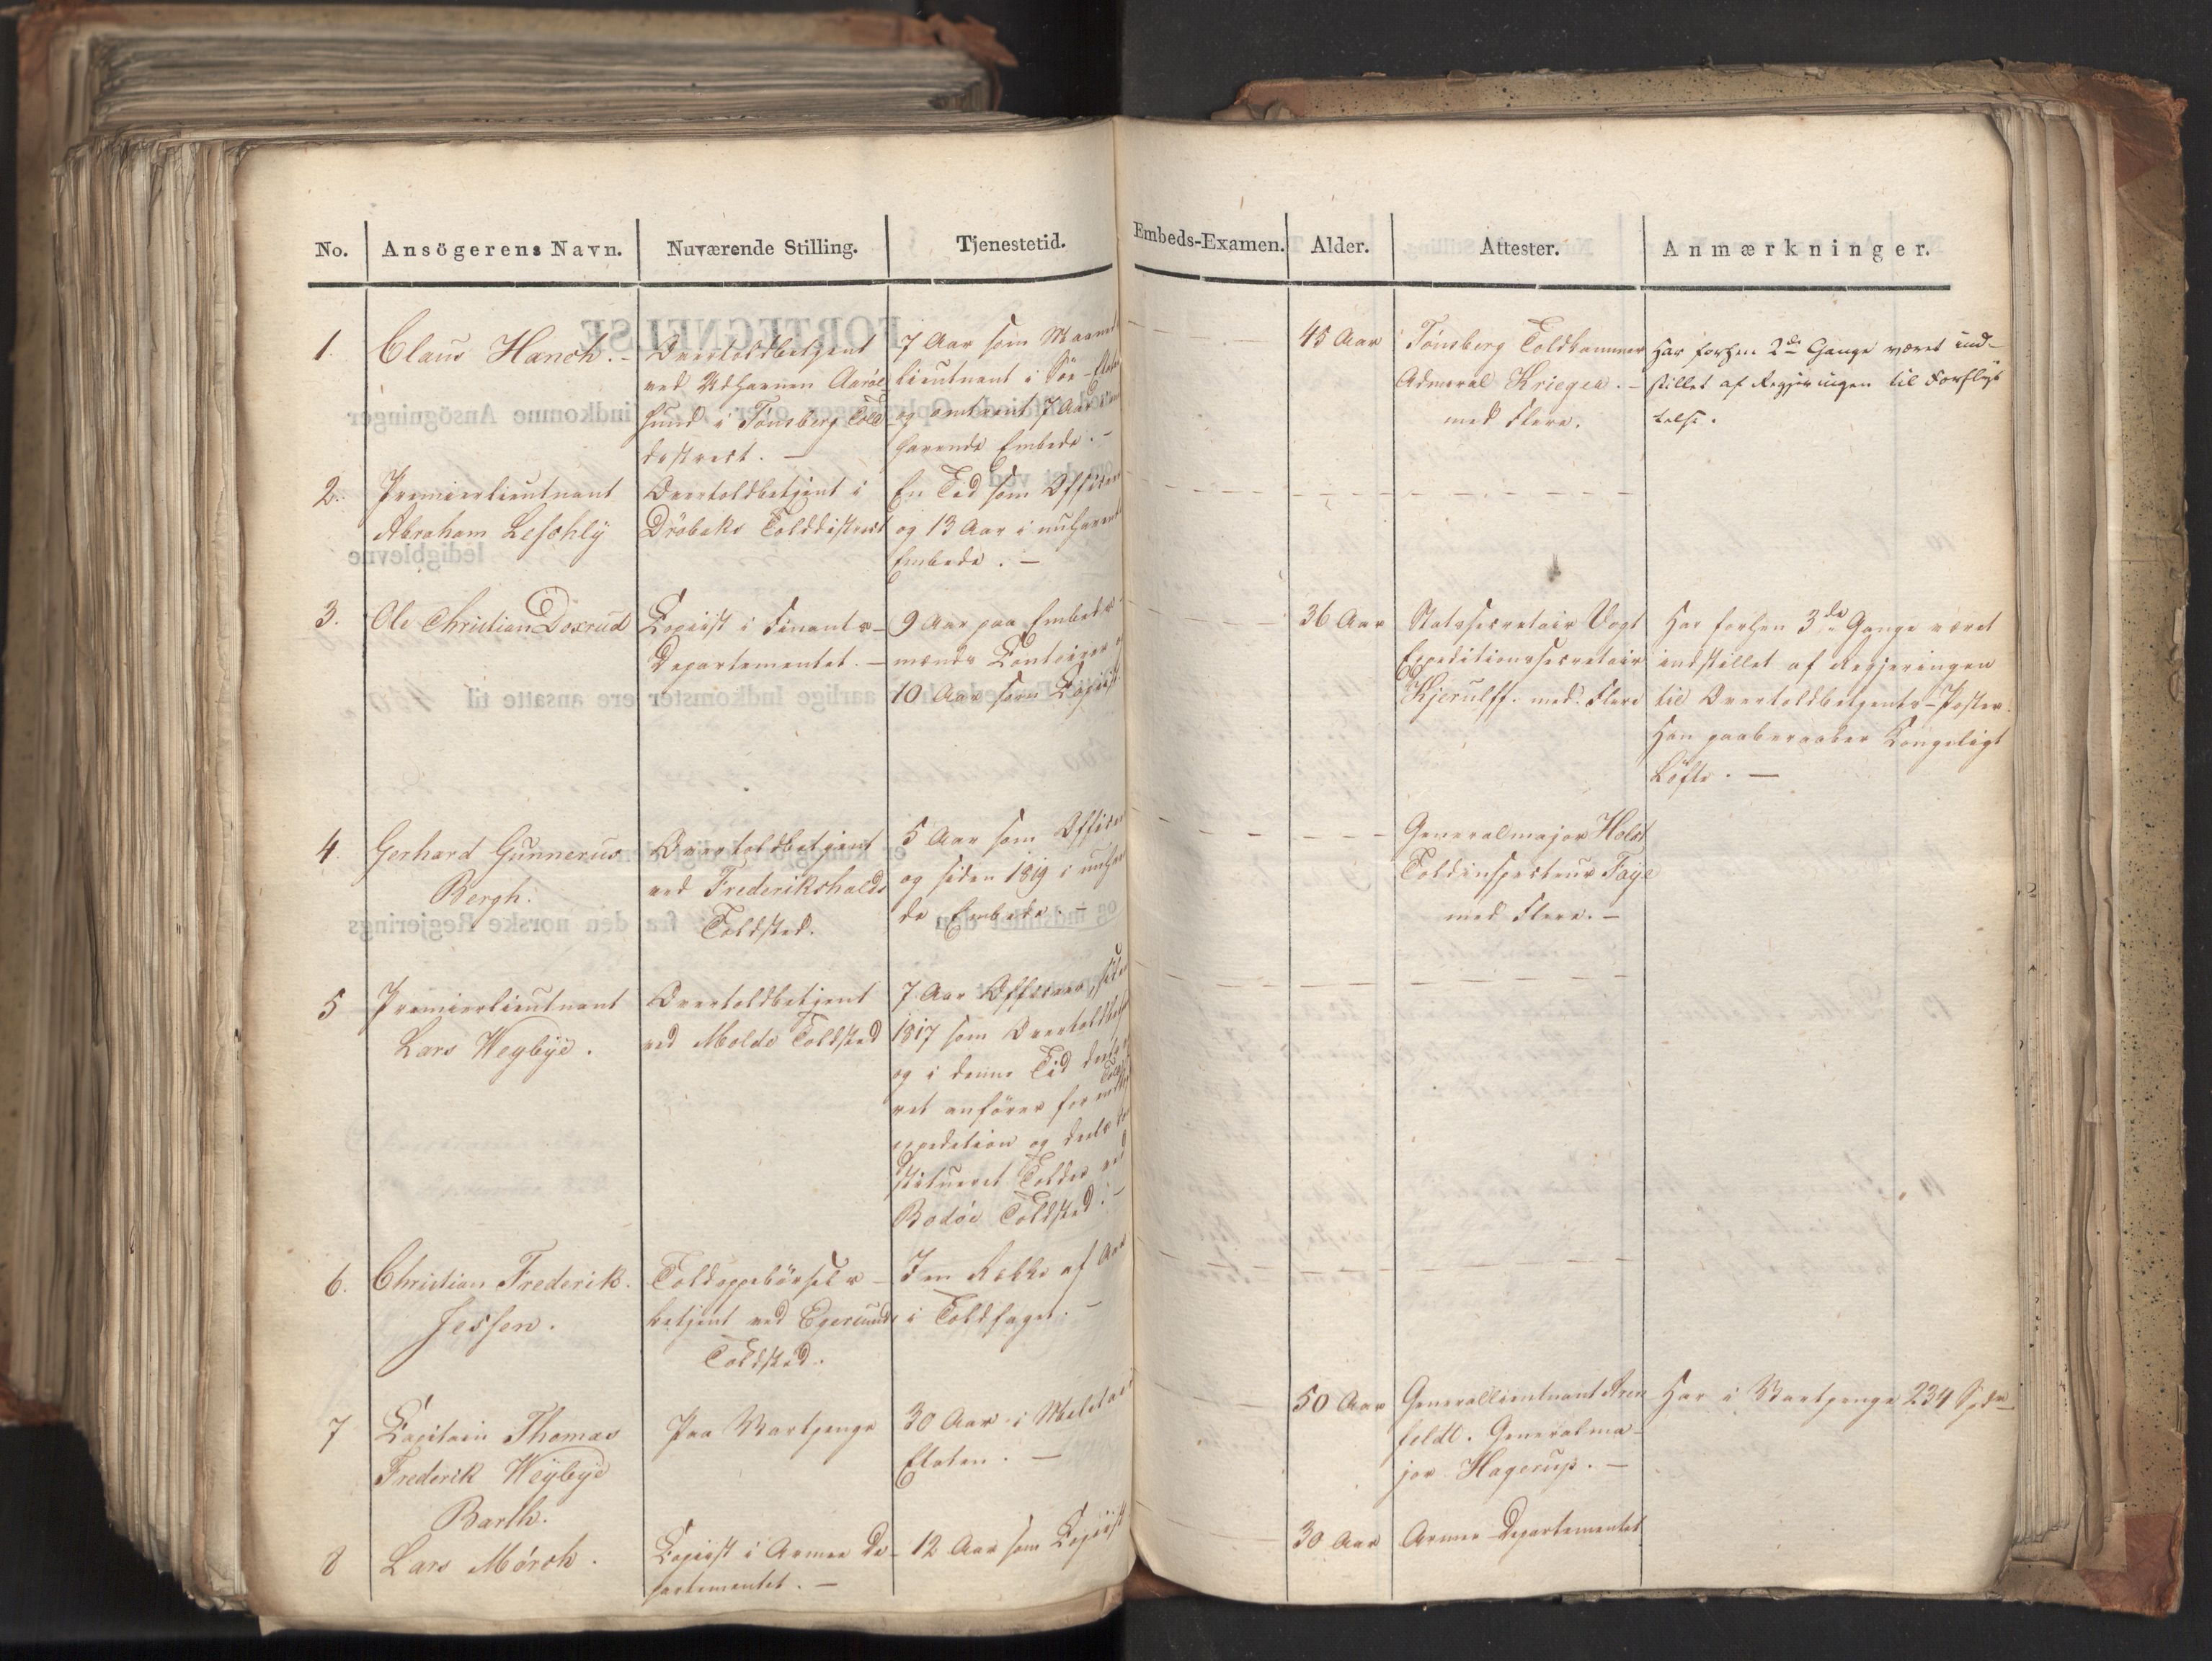 No. Ansögerens Navn. Nuværende Stilling. Tjenestetid. Embeds-Examen. Alder. Attester. Anmærkninger.
1. Claus Hanch. - Overtoldbetjent
ved Udhavnen Aaröe
sund i Tönsberg Told
destrect. -
7 Aar som Maaned
lieutnant i Söe-
og omtrent 7 Aar
havende Embede. -
45 Aar
Tönsberg Toldkammer
Admeral Krieger. -
med Flere.
Har forhen 2de Gange været ind-
stillet af Regjeringen til Forflyt
telse.
2. Premierlieutnant
Abraham Leschly
Overtoldbetjent i
Dröbaks Tolddistrict
En Tid som Officer
og 13 Aar i nuhavende
Embede. -
3. Ole Christian Doxrud
Copiist i Finants-
Departementet. -
9 Aar paa Embeds-
mænds Contoirer
10 Aar som Copiist
36 Aar
Statssecretair Vogt
Expeditionssecretair
Kjerulff. med Flere
Har forhen 3de Gange været
indstillet af Regjeringen
til Overtoldbetjents-Poster.
Han paaberaaber Kongeligt
Löfte. -
4. Gerhard Gunnerus
Bergh.
Overtoldbetjent
ved Frederikshalds
Toldsted.
5 Aar som Officer
og siden 1819 i nuhaven
de Embede. -
Generalmajor Holst
Toldinspecteur Faye
med Flere. -
5 Premierlieutnant
Lars Weybye.
Overtoldbetjent
ved Molde Toldsted
7 Aar Officeer, siden
1817 som Overtoldbetj
og i denne Tid deels
ret anförer for
expedition og deels
stitueret Tolder ved
Bodöe Toldsted. -
6. Christian Frederik
Jessen.
Toldoppebörsels-
betjent ved Egersunds
Toldsted.
I en Række af Aar
i Toldfaget. -
7 Capitain Thomas
Frederik Weybye
Barth.
Paa Vartpenge
30 Aar i Militair
Etaten. -
50 Aar
Generallieutnant Aren
feldt. Generalma-
jor Hagerup. -
Har i Vartpenge 234 Spd
8 Lars Mörch.
Copiist i Armee De-
partementet. -
12 Aar som Copiist
30 Aar
Armee Departementet